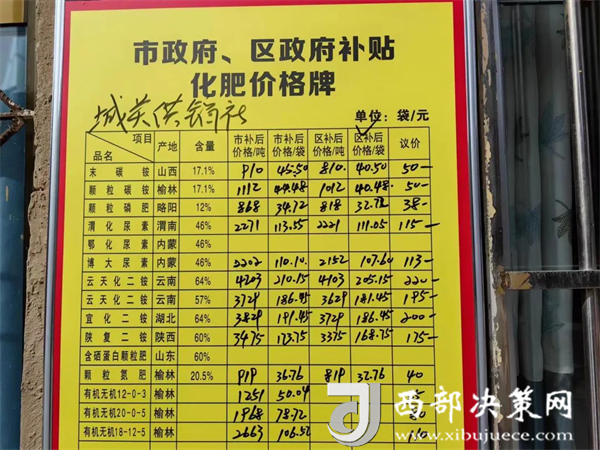 市政府、区政府补贴
化肥价格牌
城关供销社
单位：袋/元
项目 品名 产地 含量 市补后价格/吨 市补后价格/袋 区补后价格/吨 区补后价格/袋 议价
末碳铵 山西 17.1% 910 45.50 810 40.50 50-
颗粒碳铵 榆林 17.1% 1112 44.48 1012 40.48 50-
颗粒磷肥 略阳 12% 868 34.72 818 32.72 38-
渭化尿素 渭南 46% 2271 113.55 2221 111.05 115-
鄂化尿素 内蒙 46%
博大尿素 内蒙 46% 2202 110.10 2152 107.60 113-
云天化二铵 云南 64% 4203 210.15 4103 205.15 220-
云天化二铵 云南 57% 3729 186.45 3629 181.45 195-
宜化二铵 湖北 64% 3829 191.45 3729 186.45 200-
陕复二铵 陕西 60% 3475 173.75 3375 168.75 175-
含硒蛋白颗粒肥 山东 60%
颗粒氮肥 榆林 20.5% 919 36.76 819 32.76 40
有机无机12-0-3 榆林 1251 50.04
有机无机20-0-5 榆林 1968 78.72 80
有机无机18-12-5 榆林 2663 106.52
西部决策网
www.xibujuece.com